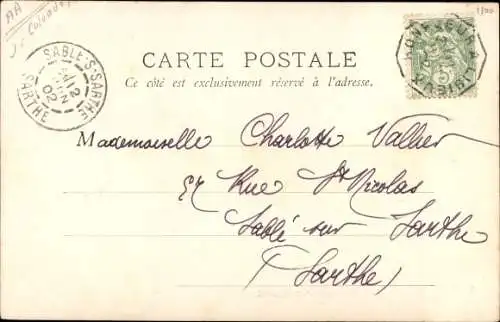 AA
CARTE POSTALE
Ce côté est exclusivement réservé à l'adresse.
SABLÉ-S-SARTHE
2
JUIN
02
SARTHE
HONFLEUR A
LISIEUX
5
Mademoiselle Charlotte Vallier
57 Rue St Nicolas
Sablé sur Sarthe
(Sarthe)